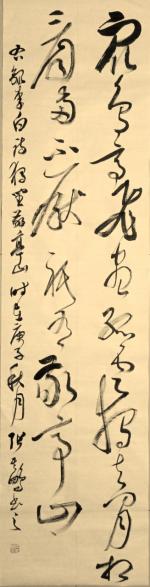 眾鳥高飛盡孤雲獨去閒相
看兩不厭祇有敬亭山
右錄李白詩獨坐敬亭山時在庚子秋月書之